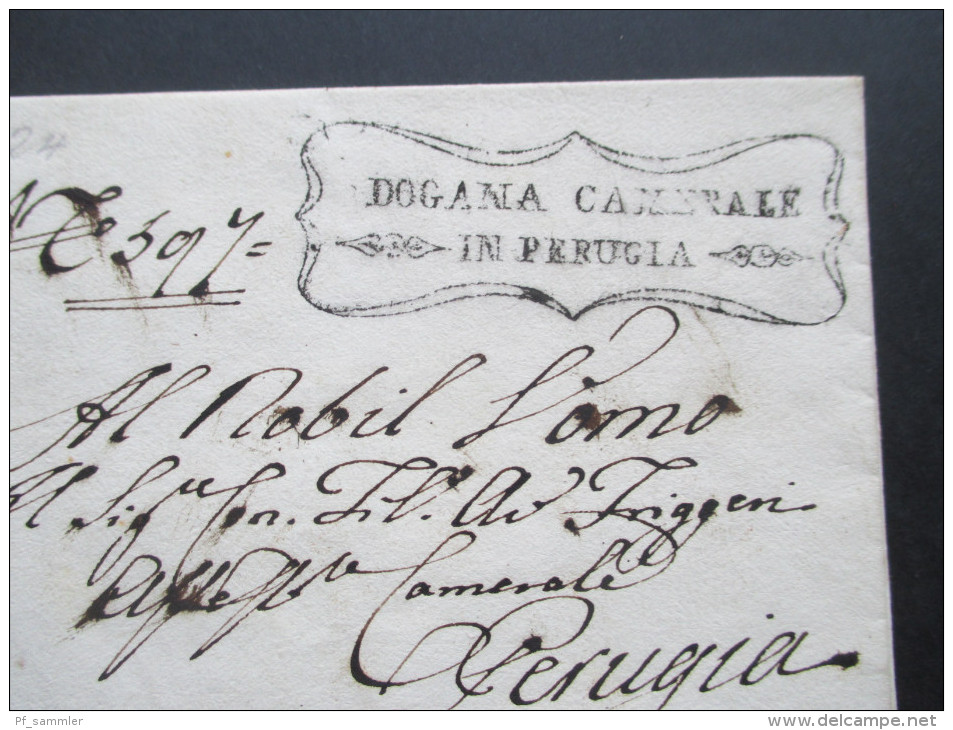 DOGANA CAMERALE
IN PERUGIA
397=
Al Nobil Uomo
Al Sigre Con. Fil. Av Friggeri
Camerale
Perugia
Pf_sammler
www.delcampe.net